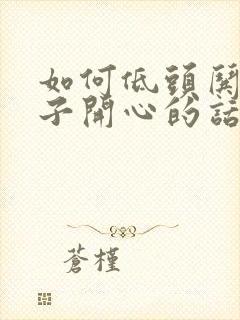 如何低頭
子開心的話
蒼槿